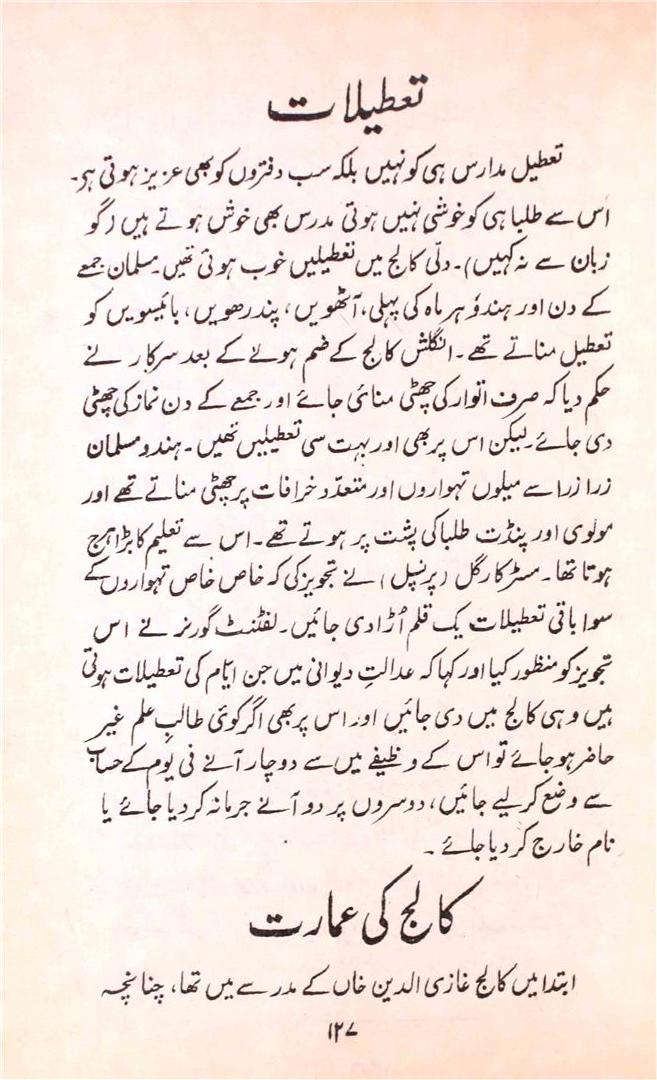 تعطیلات
تعطیل مدارس ہی کو نہیں بلکہ سب دفتروں کو بھی عزیز ہوتی ہی۔
اس سے طلبا ہی کو خوشی نہیں ہوتی مدرس بھی خوش ہوتے ہیں (گو
زبان سے نہ کہیں)۔ دلّی کالج میں تعطیلیں خوب ہوتی تھیں۔ مسلمان جمعے
کے دن اور ہندؤ ہر ماہ کی پہلی، آٹھویں، پندرھویں، بائیسویں کو
تعطیل مناتے تھے۔ انگلش کالج کے ضم ہونے کے بعد سرکار نے
حکم دیا کہ صرف اتوار کی چھٹی منائی جائے اور جمعے کے دن نماز کی چھٹی
دی جائے۔ لیکن اس پر بھی اور بہت سی تعطیلیں تھیں۔ ہندو مسلمان
زرا زرا سے میلوں تہواروں اور متعدّد خرافات پر چھٹی مناتے تھے اور
مولوی اور پنڈت طلبا کی پشت پر ہوتے تھے۔ اس سے تعلیم کا بڑا ہرج
ہوتا تھا۔ مسٹر کارگل (پرنسپل) نے تجویز کی کہ خاص خاص تہواروں کے
سوا باقی تعطیلات یک قلم اُڑا دی جائیں۔ لفٹننٹ گورنر نے اس
تجویز کو منظور کیا اور کہا کہ عدالتِ دیوانی میں جن ایّام کی تعطیلات ہوتی
ہیں وہی کالج میں دی جائیں اور اس پر بھی اگر کوئی طالبِ علم غیر
حاضر ہو جائے تو اس کے وظیفے میں سے دو چار آنے فی یوم کے حساب
سے وضع کر لیے جائیں، دوسروں پر دو آنے جرمانہ کر دیا جائے یا
نام خارج کر دیا جائے۔
کالج کی عمارت
ابتدا میں کالج غازی الدین خاں کے مدرسے میں تھا، چنانچہ
۱۲۷